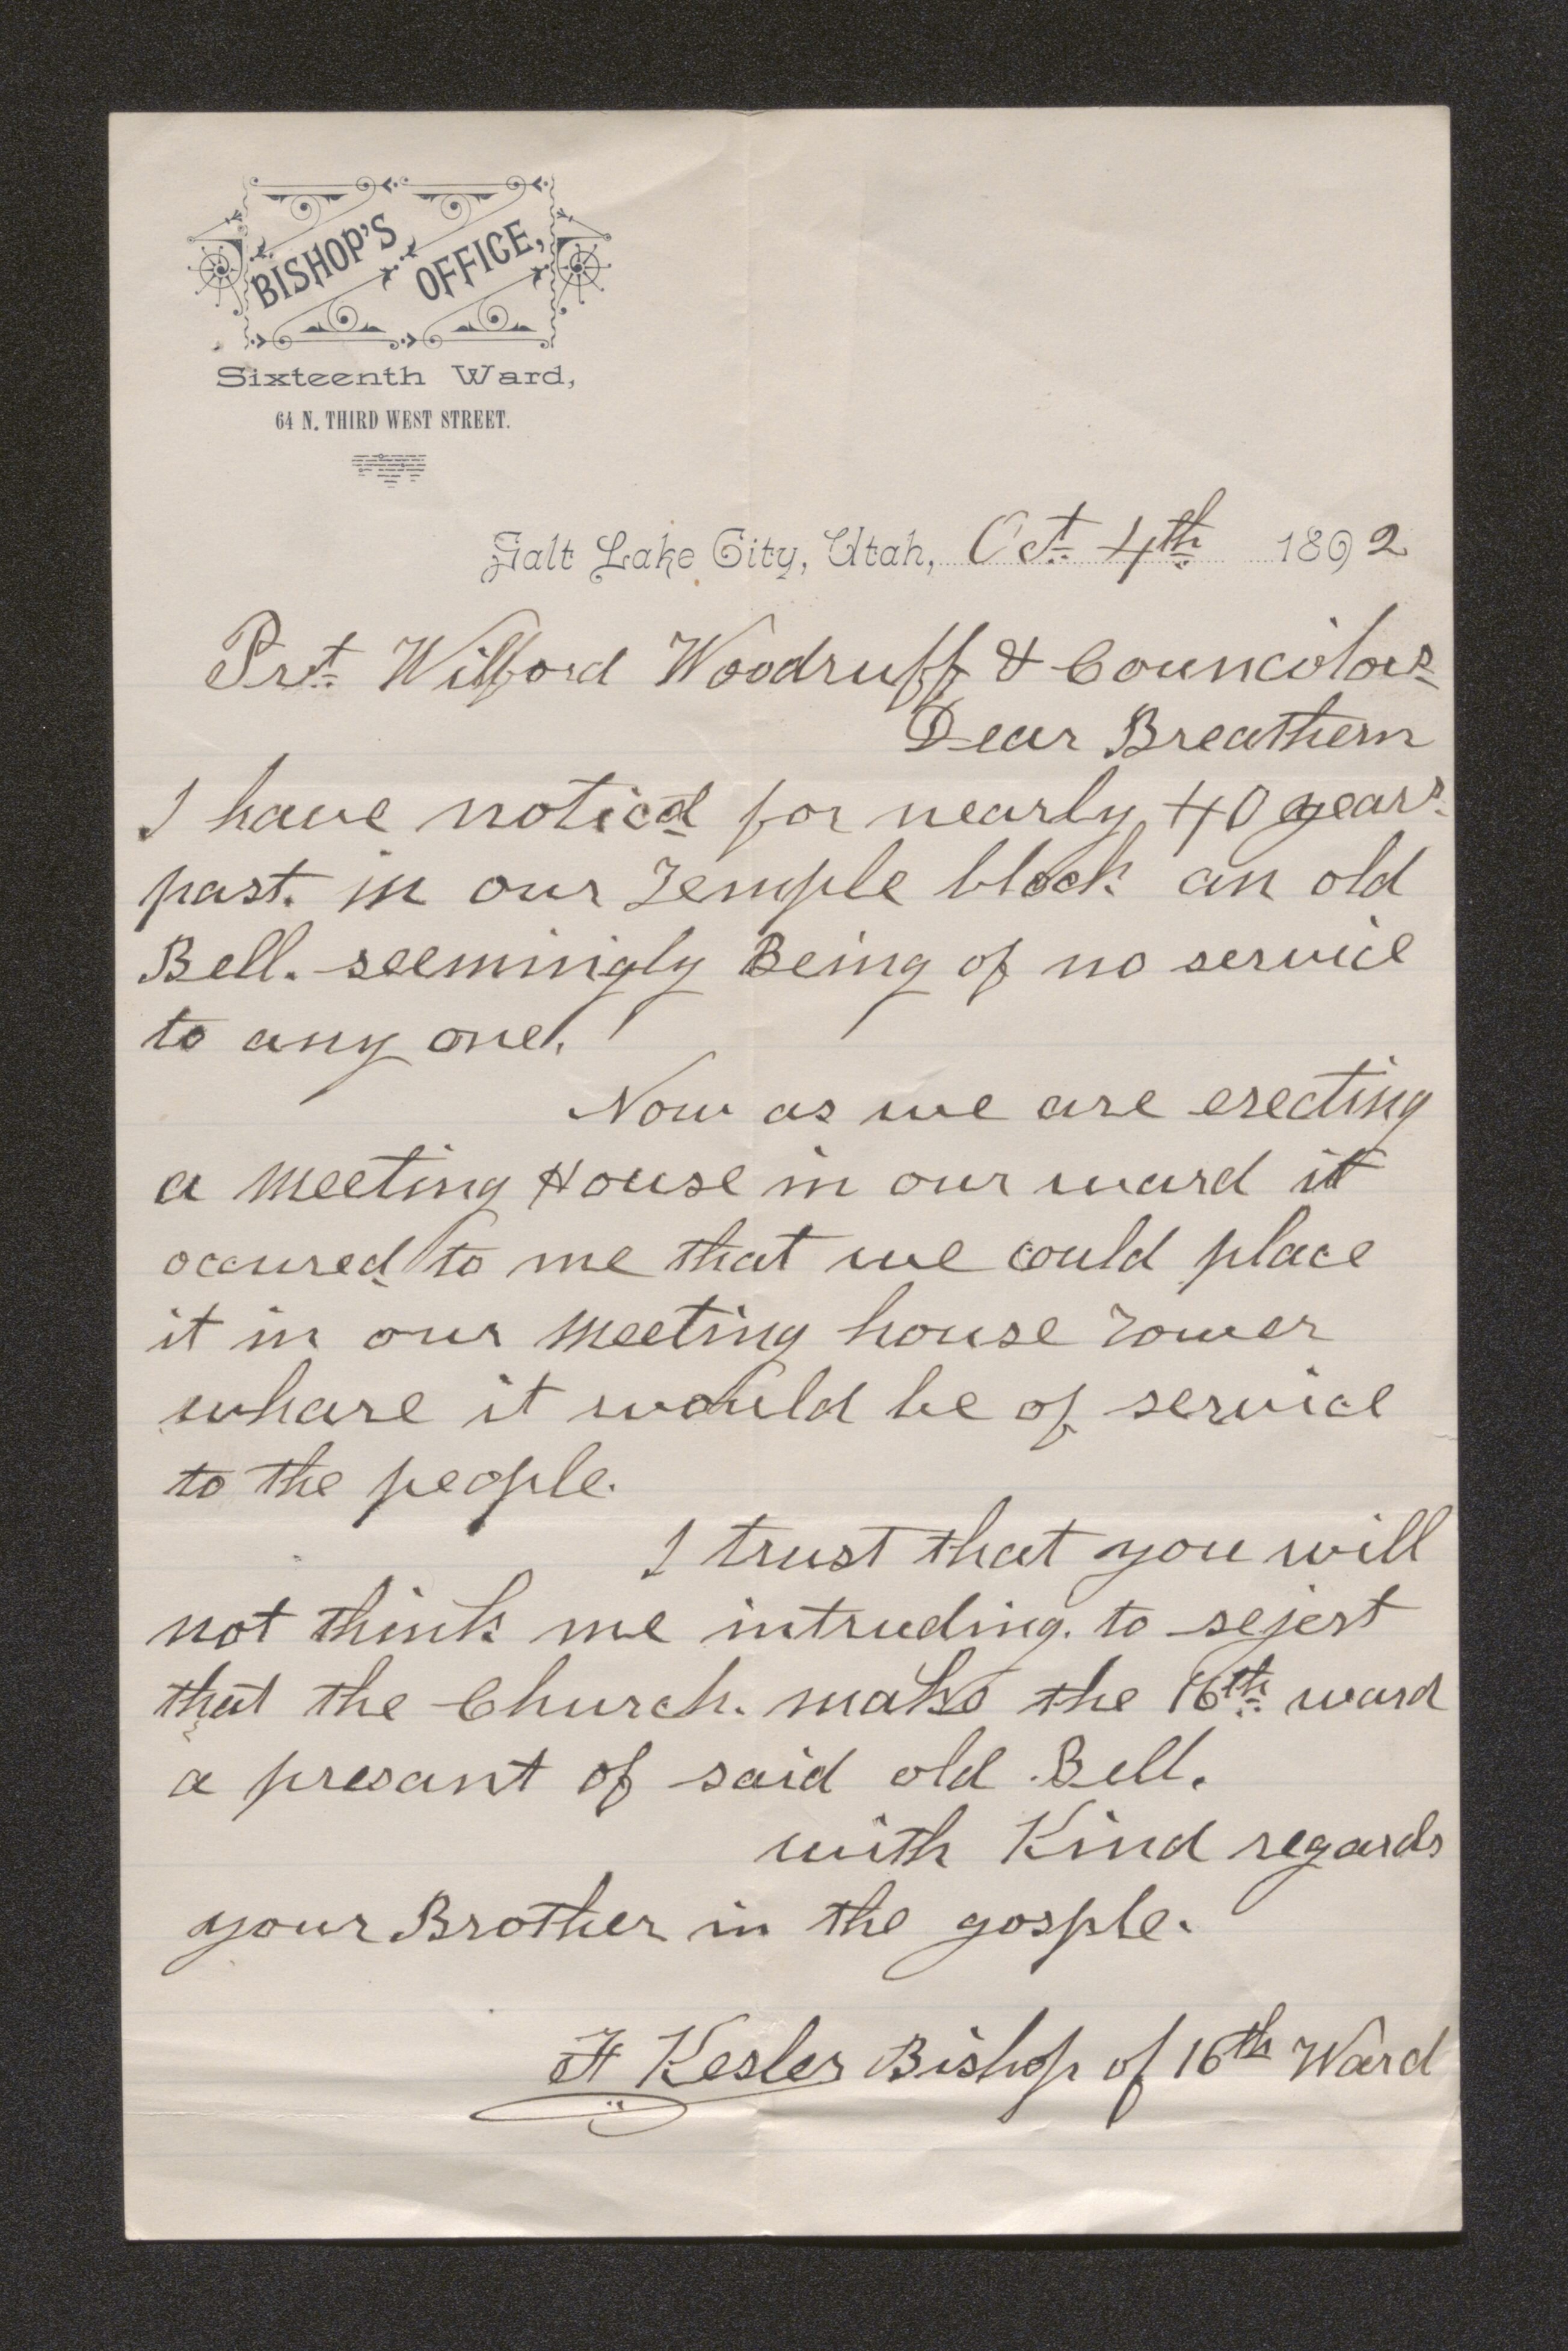 BISHOP'S OFFICE,
Sixteenth Ward,
64 N. THIRD WEST STREET.
Salt Lake City, Utah, Oct 4th 1892
Prst Wilford Woodruff & Councilors
Dear Breathern
I have noticd for nearly 40 years
past. in our Temple block an old
Bell. seemingly Being of no service
to any one.
Now as we are erecting
a meeting House in our ward it
occured to me that we could place
it in our meeting house Tower
whare it would be of service
to the people.
I trust that you will
not think me intruding. to sejest
that the Church. make the 16th ward
a presant of said old Bell.
with Kind regards
your Brother in the gosple.
F Kesler Bishop of 16th Ward